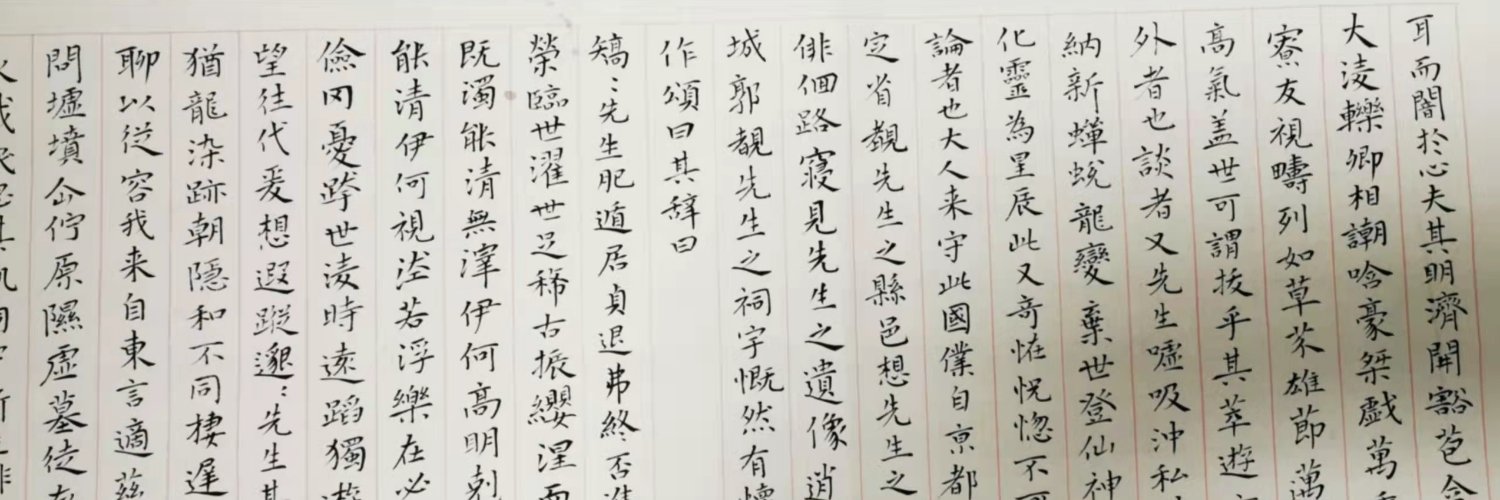 耳而闇於心夫其明濟開豁苞含
大淩轢卿相謿唅豪桀戲萬
寮友視疇列如草芥雄節邁
高氣盖世可謂拔乎其萃遊
外者也談者又先生噓吸沖
納新蟬蛻龍變棄世登仙神
化靈為星辰此又奇恠恍惚不
論者也大人来守此國僕自京都
定省覩先生之縣邑想先生之
俳佪路寢見先生之遺像逍
城郭覩先生之祠宇慨然有懷
作頌曰其辞曰
矯:先生肥遁居貞退弗終否進
榮臨世濯世足稀古振纓涅而
既濁能清無滓伊何高明剋
能清伊何視洿若浮樂在必
儉罔憂跨世淩時遠蹈獨遊
望往代爰想遐蹤邈:先生其
猶龍染跡朝隱和不同棲遲
聊以従容我来自東言適兹
問墟墳企佇原隰虛墓徒存